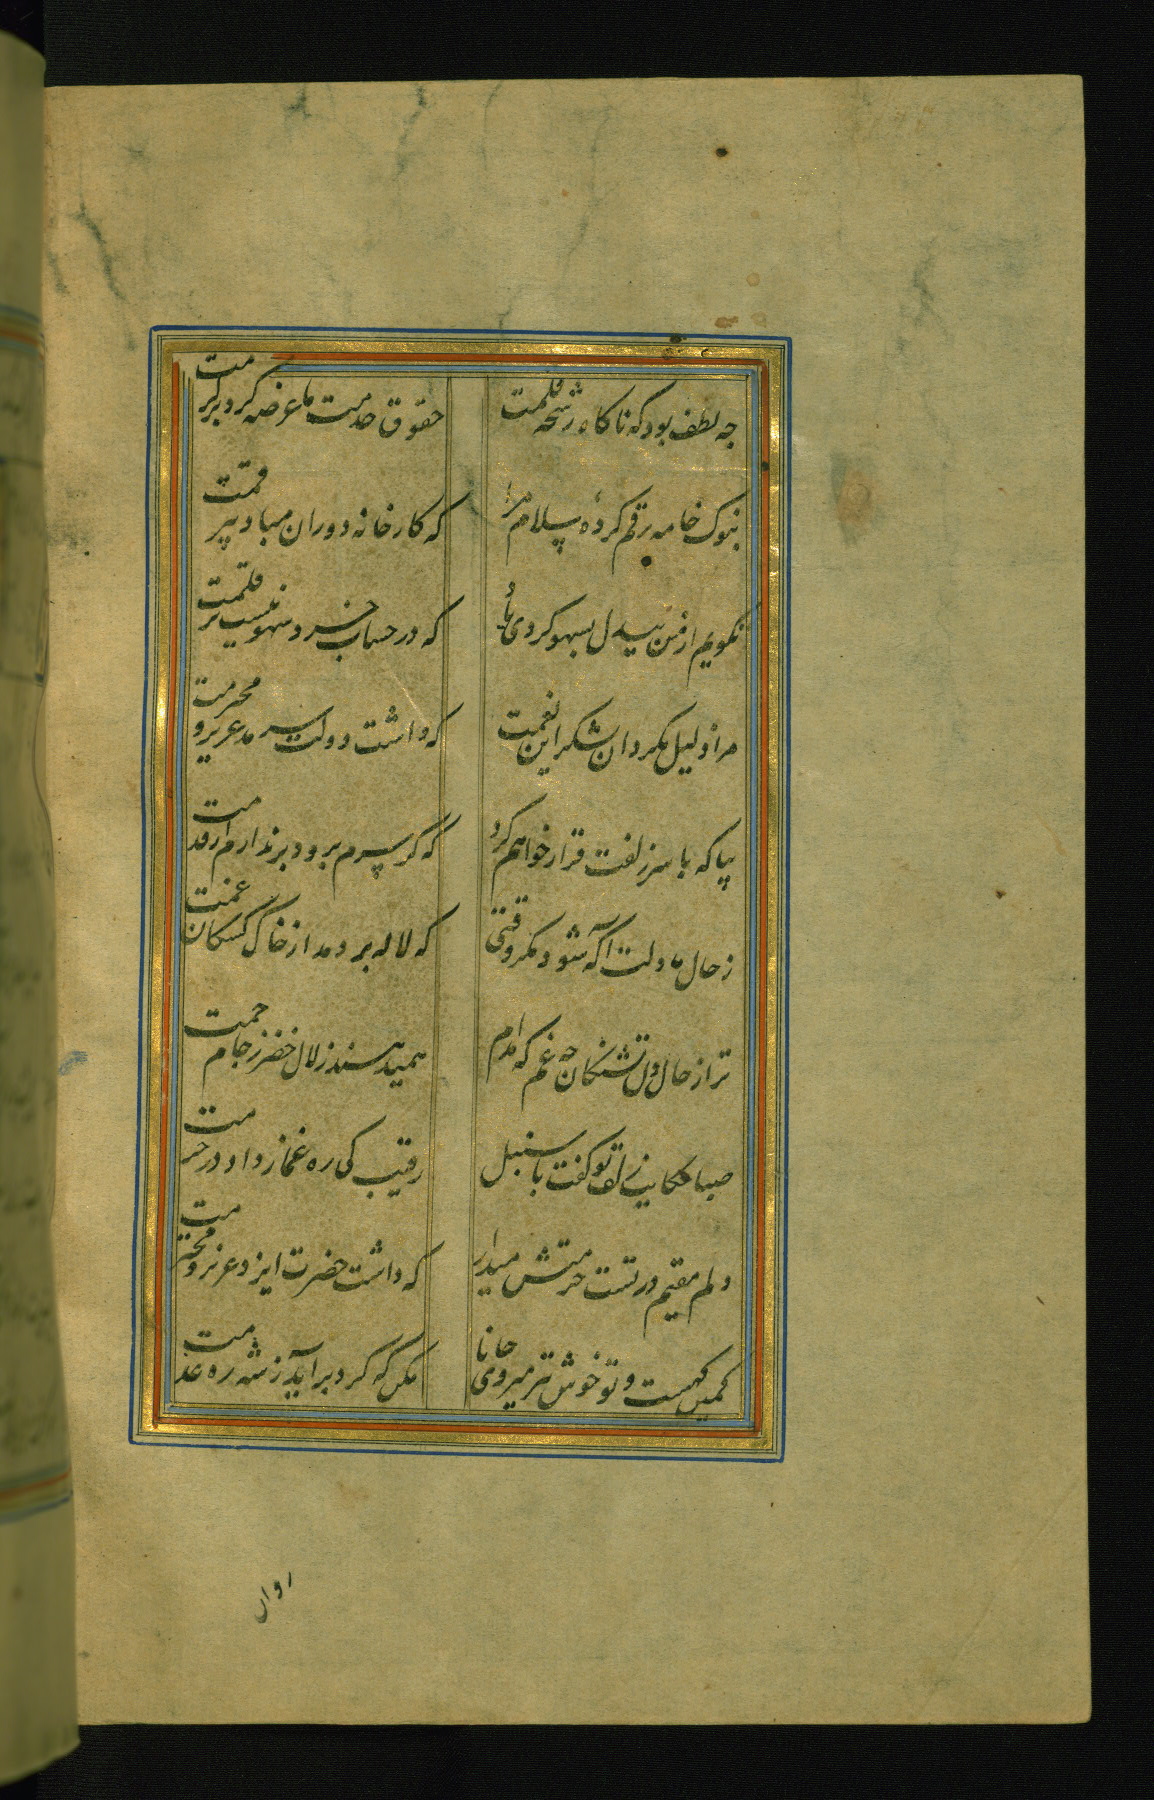 چه لطف بود که ناگاه رشحه قلمت
حقوق خدمت ما عرضه کرد بر کرمت
بنوک خامه رقم کردهٔ سلام مرا
که کارخانه دوران مباد بی رقمت
نگویم از من بیدل بسهو کردی یاد
که در حساب خرد سهو نیست بر قلمت
مرا ذلیل مگردان بشکر این نعمت
که داشت دولت سرمد عزیز و محترمت
بیا که با سر زلفت قرار خواهم کرد
که گر سرم برود برندارم از قدمت
ز حال ما دلت آگه شود مگر وقتی
که لاله بردمد از خاک کشتگان غمت
ترا ز حال دل تشنگان چه غم که مدام
همی‌دهند زلال خضر ز جام جمت
صبا حکایت زلف تو گفت با سنبل
رقیب کی ره غماز داد در حرمت
دلم مقیم در تست حرمتش میدار
که داشت حضرت ایزد عزیز و محترمت
کمین گهست و تو خوش تیز میروی جانا
مکن که گرد برآید ز شه ره عدمت
روان